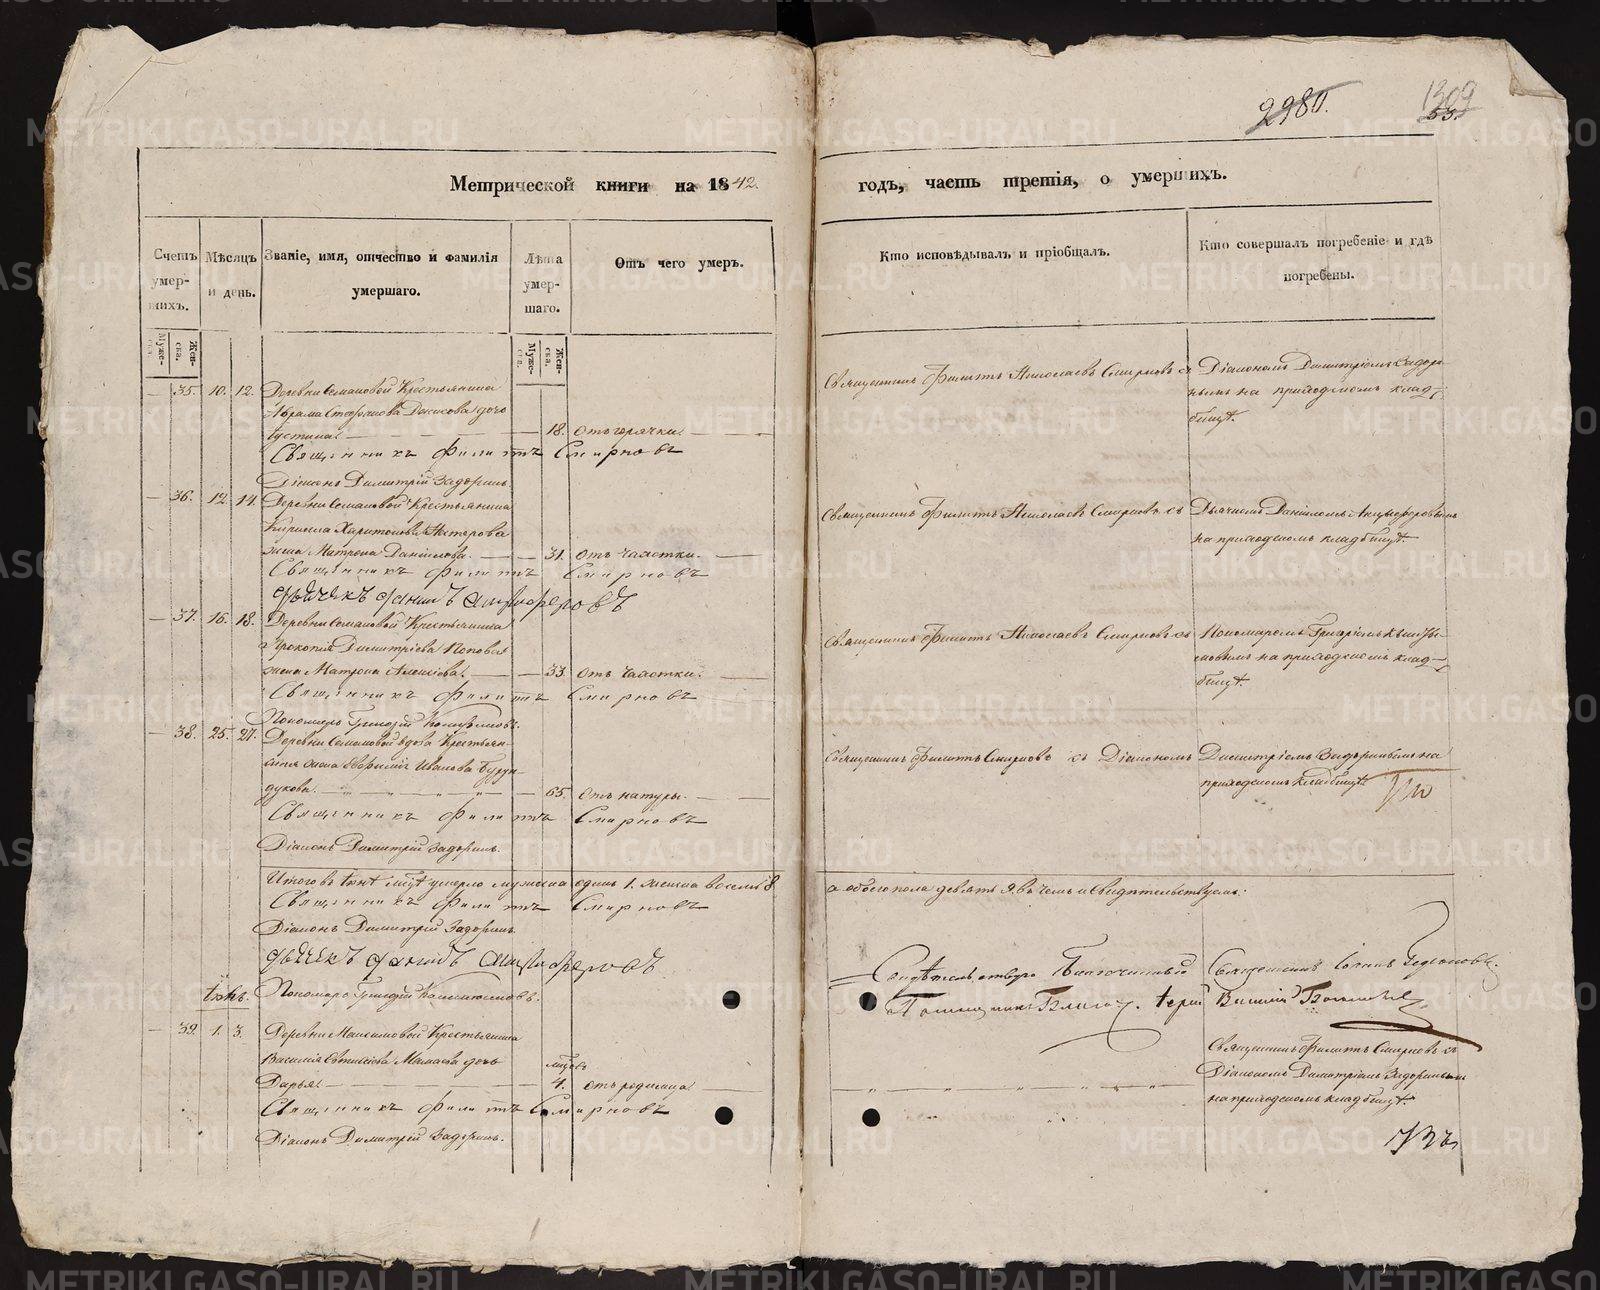 2980.
1309
53.
Метрической книги на 1842.
годъ, часть третія, о умершихъ.
Счетъ умер-шихъ.
Мѣсяцъ и день.
Званіе, имя, отчество и фамилія
умершаго.
Лѣта умер-шаго.
Отъ чего умеръ.
Кто исповѣдывалъ и пріобщалъ.
Кто совершалъ погребеніе и гдѣ
погребены.
Муже-ска.
Жен-ска.
Муже-ска.
Жен-ска.
35. 10. 12. Деревни Семановой Крестьянина
Аврама Стефанова Денисова дочь
Устина 18. отъ горячки.
Священникъ Филиппъ Смирновъ
Діаконъ Димитрій Задоринъ.
Священникъ Филиппъ Николаевъ Смирновъ съ
Діакономъ Димитріемъ Задори-
нымъ на приходскомъ клад-
бищѣ.
36. 12. 14. Деревни Семановой Крестьянина
Кирилла Харитонова
жена Матрона Данилова. 31. отъ чахотки.
Священникъ Филиппъ Смирновъ
Дьячекъ Данилъ
Священникъ Филиппъ Николаевъ Смирновъ съ
Дьячкомъ Даніиломъ
на приходскомъ кладбищѣ.
37. 16. 18. Деревни Семановой Крестьянина
Прокопія Димитріева Попова
жена Матрона Алексіева. 33. отъ чахотки.
Священникъ Филиппъ Смирновъ
Пономарь Григорій
Священникъ Филиппъ Николаевъ Смирновъ съ
Пономаремъ Григоріемъ
на приходскомъ клад-
бищѣ.
38. 25. 27. Деревни Семановой вдова Крестьян-
ская жена Евфимія Иванова Бурун-
дукова. 65. отъ натуры.
Священникъ Филиппъ Смирновъ
Діаконъ Димитрій Задоринъ.
Священникъ Филиппъ Смирновъ съ Діакономъ
Димитріемъ Задоринымъ на
приходскомъ кладбищѣ.
Итого въ умерло мужеска одинъ 1. женска восемь 8
а обоего пола девять 9. въ чемъ и свидѣтельствуемъ:
Священникъ Филиппъ Смирновъ
Діаконъ Димитрій Задоринъ
Дьячекъ Данилъ
Пономарь Григорій
Свидѣтельствовалъ Благочинный
Священникъ
39. 1. 3. Деревни Максимовой Крестьянина
Василія Мамаева дочь
Дарья мѣсяцъ 4. отъ родимца
Священникъ Филиппъ Смирновъ
Діаконъ Димитрій Задоринъ.
Священникъ Филиппъ Смирновъ съ
Діакономъ Димитріемъ Задоринымъ
на приходскомъ кладбищѣ.
METRIKI.GASO-URAL.RU